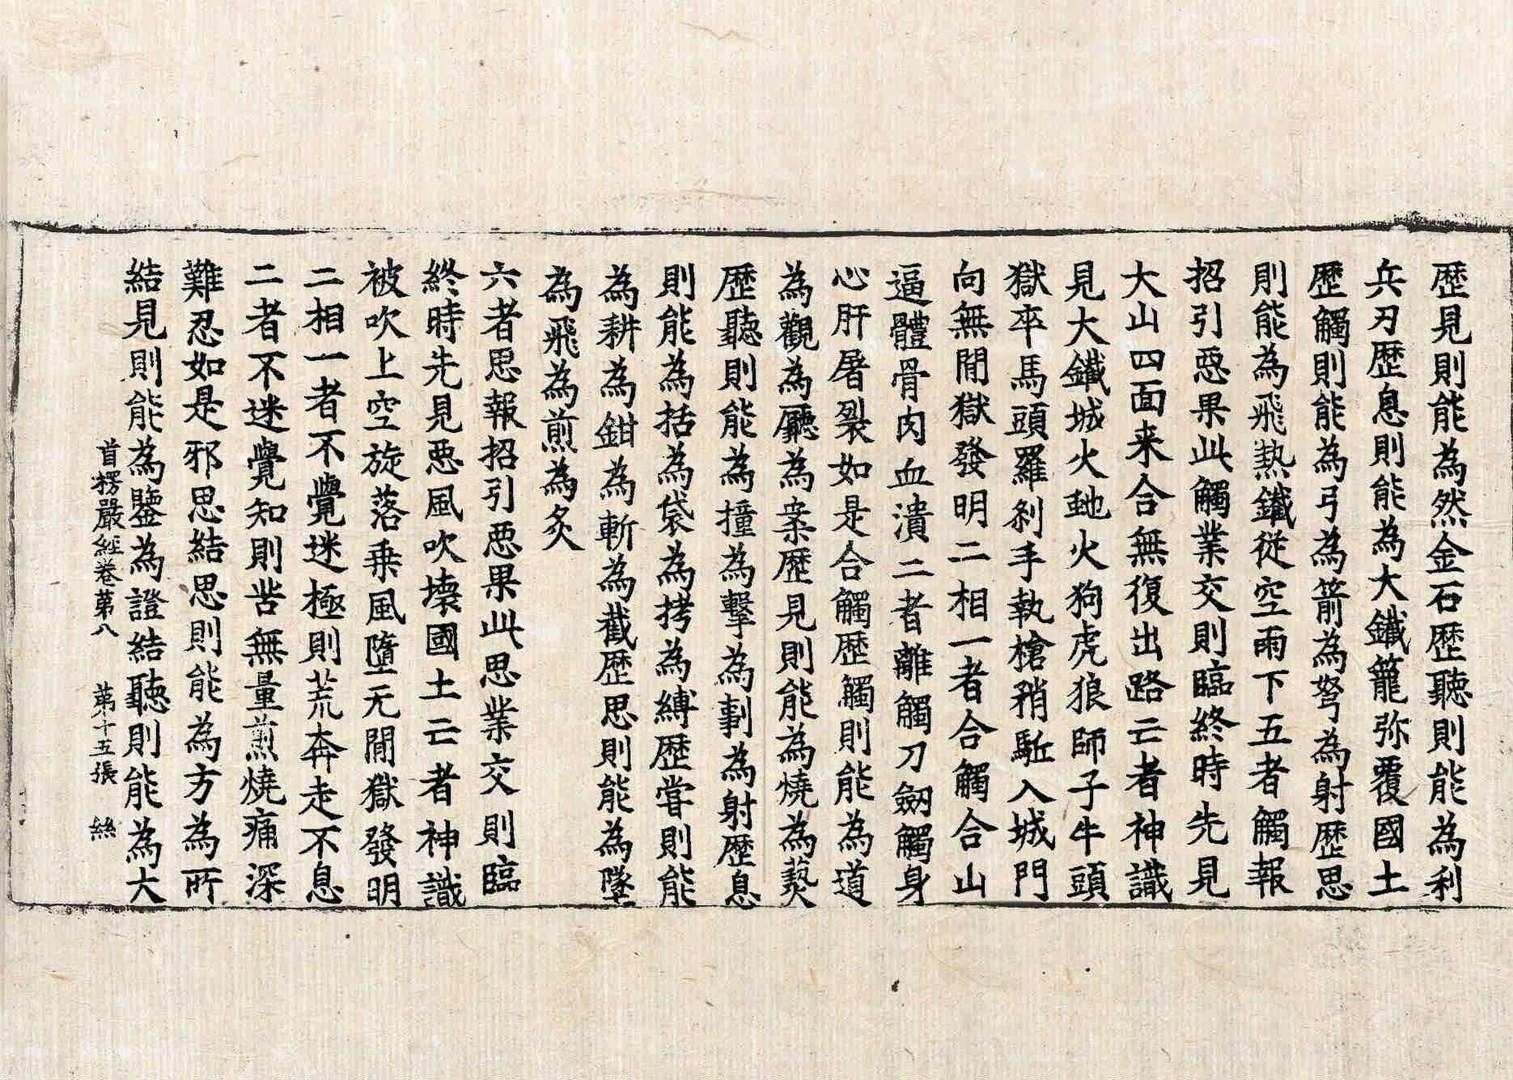 歷見則能為然金石歷聽則能為利
兵刃歷息則能為大鐵籠弥覆國土
歷觸則能為弓為箭為弩為射歷思
則能為飛熱鐵從空雨下五者觸報
招引惡果此觸業交則臨終時先見
大山四面来合無復出路亡者神識
見大鐵城火虵火狗虎狼師子牛頭
獄卒馬頭羅刹手執槍矟駈入城門
向無間獄發明二相一者合觸合山
逼體骨肉血潰二者離觸刀劒觸身
心肝屠裂如是合觸歷觸則能為道
為觀為廳為案歷見則能為燒為爇
歷聽則能為撞為擊為剚為射歷息
則能為括為袋為拷為縛歷甞則能
為耕為鉗為斬為截歷思則能為墜
為飛為煎為炙
六者思報招引惡果此思業交則臨
終時先見惡風吹壞國土亡者神識
被吹上空旋落乗風墮无間獄發明
二相一者不覺迷極則荒奔走不息
二者不迷覺知則苦無量煎燒痛深
難忍如是邪思結思則能為方為所
結見則能為鑒為證結聽則能為大
首楞嚴經卷第八 第十五張 絲